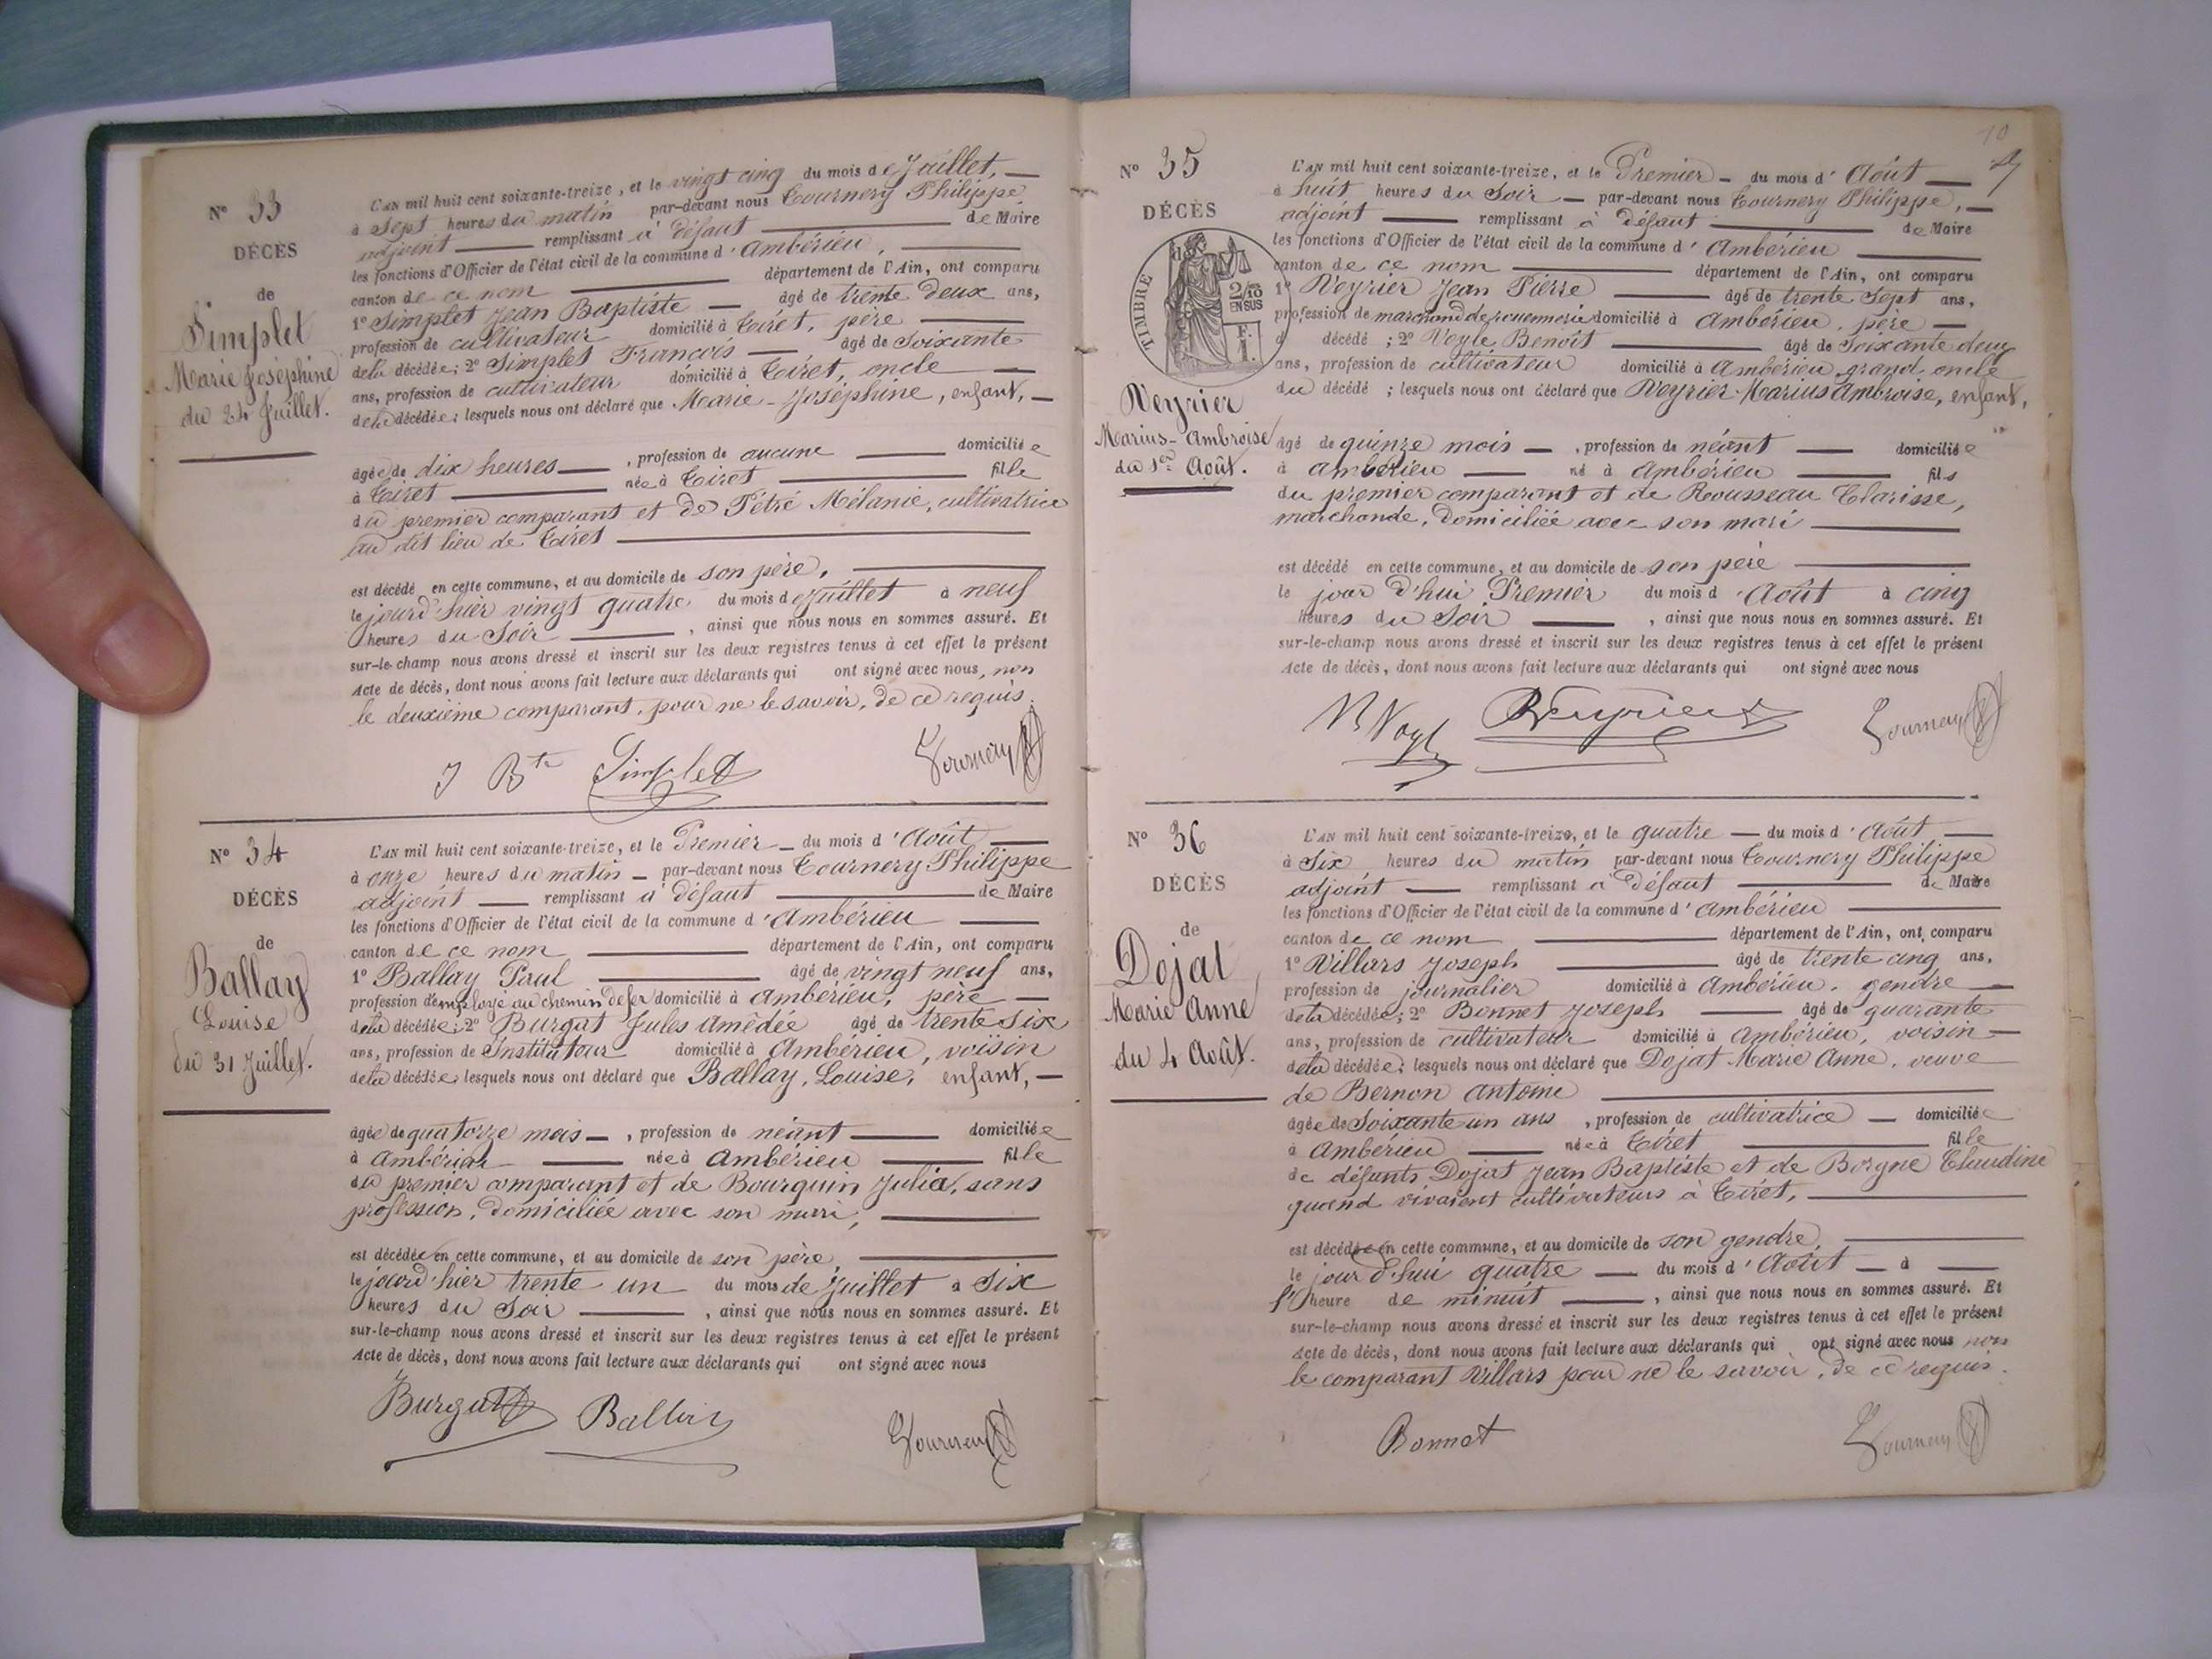 N° 33
DÉCÈS
de
Simplet
Marie Joséphine
du 24 Juillet.
L'AN mil huit cent soixante-treize, et le vingt cinq du mois de Juillet, —
à sept heures du matin par-devant nous Tournery Philippe
adjoint — remplissant à défaut — de Maire
les fonctions d'Officier de l'état civil de la commune d'Ambérieu, —
canton de ce nom — département de l'Ain, ont comparu
1° Simplet Jean Baptiste — âgé de trente deux ans,
profession de cultivateur domicilié à Tiret, père —
de la décédée; 2° Simplet François — âgé de soixante
ans, profession de cultivateur domicilié à Tiret, oncle —
de la décédée; lesquels nous ont déclaré que Marie-Joséphine, enfant, —
âgée de dix heures — , profession de aucune — domiciliée
à Tiret — née à Tiret — fille
du premier comparant et de Pétré Mélanie, cultivatrice
au dit lieu de Tiret —
est décédé en cette commune, et au domicile de son père, —
le jourd'hier vingt quatre du mois de Juillet à neuf
heures du Soir — , ainsi que nous nous en sommes assuré. Et
sur-le-champ nous avons dressé et inscrit sur les deux registres tenus à cet effet le présent
Acte de décès, dont nous avons fait lecture aux déclarants qui ont signé avec nous, non
le deuxième comparant, pour ne le savoir, de ce requis.
J Bte Simplet Tournery
N° 34
DÉCÈS
de
Ballay
Louise
du 31 Juillet.
L'AN mil huit cent soixante-treize, et le Premier — du mois d'Août —
à onze heures du matin — par-devant nous Tournery Philippe
adjoint — remplissant à défaut — de Maire
les fonctions d'Officier de l'état civil de la commune d'Ambérieu —
canton de ce nom — département de l'Ain, ont comparu
1° Ballay Paul — âgé de vingt neuf ans,
profession d'employé au chemin de fer domicilié à Ambérieu, père —
de la décédée; 2° Burgat Jules Amédée âgé de trente six
ans, profession de Instituteur domicilié à Ambérieu, voisin
de la décédée; lesquels nous ont déclaré que Ballay, Louise, enfant, —
âgée de quatorze mois — , profession de néant — domiciliée
à Ambérieu — née à Ambérieu — fille
du premier comparant et de Bourquin Julia, sans
profession, domiciliée avec son mari, —
est décédée en cette commune, et au domicile de son père, —
le jourd'hier trente un du mois de Juillet à six
heures du Soir — , ainsi que nous nous en sommes assuré. Et
sur-le-champ nous avons dressé et inscrit sur les deux registres tenus à cet effet le présent
Acte de décès, dont nous avons fait lecture aux déclarants qui ont signé avec nous
Burgat Ballay Tournery
10
N° 35
DÉCÈS
de
TIMBRE
2/10
EN SUS
F.
1.
Veyrier
Marius-Ambroise
du 1er Août.
L'AN mil huit cent soixante-treize, et le Premier — du mois d'Août —
à huit heures du Soir — par-devant nous Tournery Philippe, —
adjoint — remplissant à défaut — de Maire
les fonctions d'Officier de l'état civil de la commune d'Ambérieu —
canton de ce nom — département de l'Ain, ont comparu
1° Veyrier Jean Pierre — âgé de trente sept ans,
profession de marchand de rouennerie domicilié à Ambérieu, père —
d décédé; 2° Vogle Benoît — âgé de soixante deux
ans, profession de cultivateur domicilié à Ambérieu, grand-oncle
du décédé; lesquels nous ont déclaré que Veyrier Marius Ambroise, enfant,
âgé de quinze mois — , profession de néant — domicilié
à Ambérieu — né à Ambérieu — fils
du premier comparant et de Rousseau Clarisse,
marchande, domiciliée avec son mari —
est décédé en cette commune, et au domicile de son père —
le jour d'hui Premier du mois d'Août à cinq
heures du Soir — , ainsi que nous nous en sommes assuré. Et
sur-le-champ nous avons dressé et inscrit sur les deux registres tenus à cet effet le présent
Acte de décès, dont nous avons fait lecture aux déclarants qui ont signé avec nous
Veyrier Tournery
N° 36
DÉCÈS
de
Dojat
Marie Anne
du 4 Août.
L'AN mil huit cent soixante-treize, et le quatre — du mois d'Août —
à Six heures du matin par-devant nous Tournery Philippe
adjoint — remplissant à défaut — de Maire
les fonctions d'Officier de l'état civil de la commune d'Ambérieu —
canton de ce nom — département de l'Ain, ont comparu
1° Villars Joseph — âgé de trente cinq ans,
profession de journalier domicilié à Ambérieu, gendre —
de la décédée; 2° Bonnet Joseph — âgé de quarante
ans, profession de cultivateur domicilié à Ambérieu, voisin —
de la décédée; lesquels nous ont déclaré que Dojat Marie Anne, veuve
de Bernon Antoine —
âgée de Soixante un ans , profession de cultivatrice — domiciliée
à Ambérieu — née à Tiret — fille
de défunts Dojat Jean Baptiste et de Borgne Claudine
quand vivaient cultivateurs à Tiret, —
est décédée en cette commune, et au domicile de son gendre, —
le jour d'hui quatre — du mois d'Août — à —
l'heure de minuit — , ainsi que nous nous en sommes assuré. Et
sur-le-champ nous avons dressé et inscrit sur les deux registres tenus à cet effet le présent
Acte de décès, dont nous avons fait lecture aux déclarants qui ont signé avec nous non
le comparant Villars pour ne le savoir, de ce requis.
Bonnet Tournery